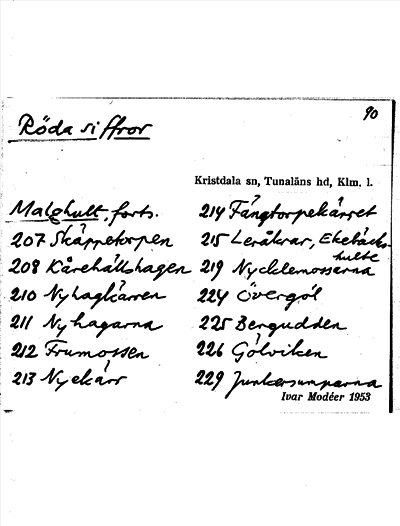 90
Röda siffror
Kristdala sn, Tunaläns hd, Klm. l.
Malghult, forts.
207 Skäppetorpen
208 Kårehällshagen
210 Nyhagkärren
211 Nyhagarna
212 Frumossen
213 Nyekärr
214 Fångtorpekärret
215 Leråkrar, Ekebäcks-
hulte
219 Nycklemosserna
224 Övergöl
225 Bergudden
226 Gölviken
229 Junkersumparna
Ivar Modéer 1953